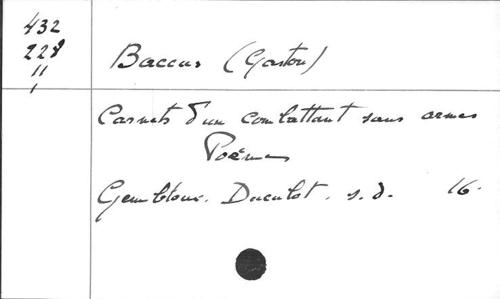 432
228
11
1
Baccus (Gaston)
Carnets d'un combattant sans armes
Poèmes
Gembloux. Duculot. s.d. 16.